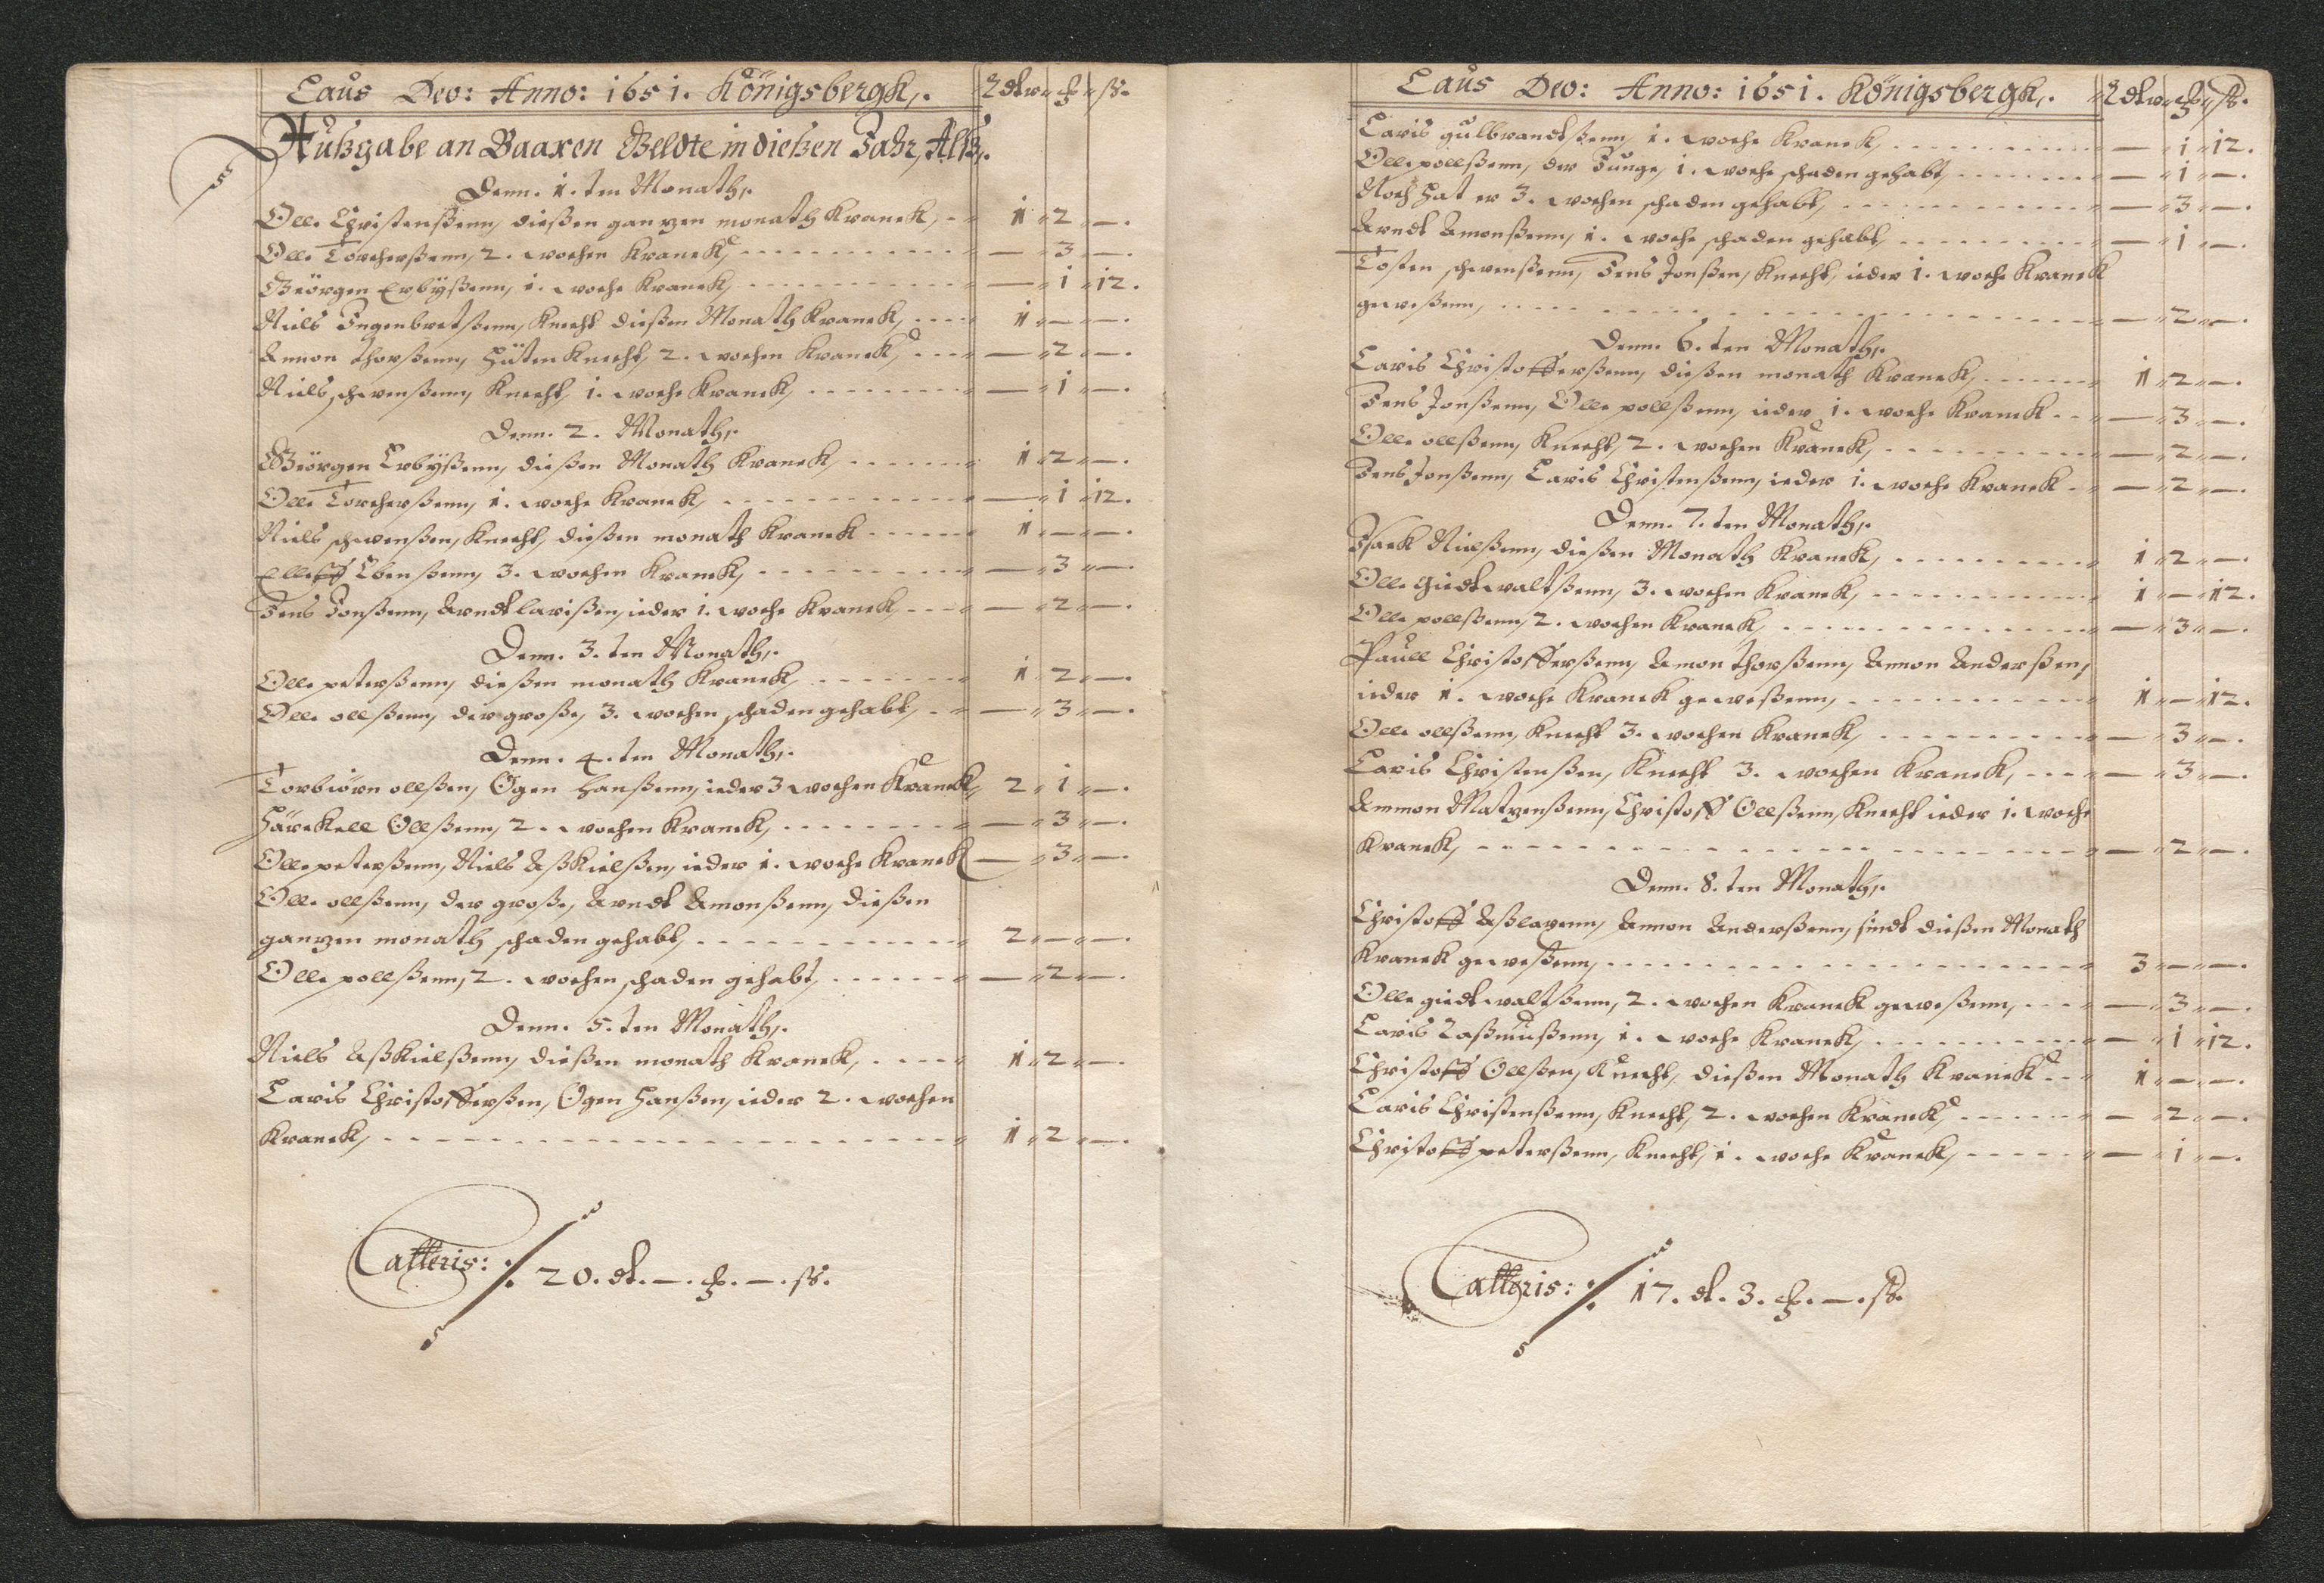 Laus Deo: Anno: 1651. Königsbergk,. Rdlr " ₰ " ß.
Außgabe an Baaren Geldte in dießen Jahr, Alß,.
Denn. 1. ten Monath,.
Olle Christenßenn, dießen gantzen monath Kranck, - " 1 " 2 " —.
Olle Torcherßenn, 2. wochen Kranck, - - - " — " 3 " —.
Geörgen Erbÿßenn, 1. woche Kranck, - - - " — " 1 " 12.
Niels Ingenbretßenn, Knecht dießen Monath Kranck, - - - " 1 " — " —.
Ammon Thorßenn, Hütten Knecht, 2. wochen Kranck, - - - " — " 2 " —.
Niels schwenßenn, Knecht, 1. woche Kranck, - - - " — " 1 " —.
Denn. 2. Monath,.
Geörgen Erbÿßenn, dießen Monath Kranck, - - - " 1 " 2 " —.
Olle Torcherßenn, 1. woche Kranck, - - - " — " 1 " 12.
Niels schwenßen, Knecht, dießen monath Kranck - - - " 1 " — " —.
Elleff Ebenßenn, 3. wochen Kranck, - - - " — " 3 " —.
Jens Jonßenn, Arndt larißen, ieder 1. woche Kranck, - - - " — " 2 " —.
Denn. 3. ten Monath,.
Olle peterßenn, dießen monath Kranck, - - - " 1 " 2 " —.
Olle ollßenn, der große, 3. wochen schaden gehabt, - " — " 3 " —.
Denn. 4. ten Monath,.
Torbiörn ollßen, Ogen Hanßenn, ieder 3 wochen Kranck, 2 " 1 " —.
Härekell Ollßenn, 2. wochen Kranck, - - - " — " 3 " —.
Olle peterßenn, Niels Aßkielßen, ieder 1. woche Kranck — " 3 " —.
Olle ollßenn, der große, Arndt Amonßenn, dießen
gantzen monath schaden gehabt, - - - " 2 " — " —.
Olle pollßenn, 2. wochen schaden gehabt, - - - " — " 2 " —.
Denn. 5. ten Monath,.
Niels Aßkielßenn, dießen monath Kranck, - - - " 1 " 2 " —.
Laris Christofferßen, Ogen Hanßen, ieder 2. wochen
Kranck, - - - " 1 " 2 " —.
Latteris: ./. 20. dl. —. ₰. —. ß.
Laus Deo: Anno: 1651. Königsbergk,. " Rdlr " ₰ " ß.
Laris gulbrandtßenn, 1. woche Kranck, - - - — " 1 " 12.
Olle pollßenn, der Junge, 1. woche schaden gehabt, - - - " — " 1 " —.
Noch Hat er 3. wochen schaden gehabt, - - - " — " 3 " —.
Arndt Amonßenn, 1. woche schaden gehabt, - - - " — " 1 " —.
Tosten schwenßenn, Jens Jonßen, Knecht, ieder 1. woche Kranck
geweßenn, - - - " — " 2 " —.
Denn. 6. ten Monath,.
Laris Christofferßenn, dießen monath Kranck, - - - " 1 " 2 " —.
Jens Jonßenn, Olle pollßenn, ieder 1. woche Kranck - - " — " 3 " —.
Olle ollßenn, Knecht, 2. wochen Kranck, - - - " — " 2 " —.
Jens Jonßenn, Laris Christenßenn, ieder 1. woche Kranck - " — " 2 " —.
Denn. 7. ten Monath,.
Isack Nielßenn, dießen Monath Kranck, - - - " 1 " 2 " —.
Olle Giedtwaltßenn, 3. wochen Kranck, - - - " 1 " — " 12.
Olle pollßenn, 2. wochen Kranck, - - - " — " 3 " —.
Paull Christofferßenn, Amon Thorßenn, Ammon Anderßen,
ieder 1. woche Kranck geweßenn, - - - " 1 " — " 12.
Olle ollßenn, Knecht 3. wochen Kranck, - - - " — " 3 " —.
Laris Christenßen, Knecht 3. wochen Kranck, - - - " — " 3 " —.
Ammon Matzenßenn, Christoff Ollßenn, Knecht ieder 1. woche
Kranck, - - - " — " 2 " —.
Denn. 8. ten Monath,.
Christoff Aßlaxenn, Ammon Anderßenn, sindt dießen Monath
Kranck geweßenn, - - - " 3 " — " —.
Olle giedtwaltßenn, 2. wochen Kranck geweßenn, - - - " — " 3 " —.
Laris Raßmußenn, 1. woche Kranck, - - - " — " 1 " 12.
Christoff Ollßen, Knecht, dießen Monath Kranck - - " 1 " — " —.
Laris Christenßenn, Knecht, 2. wochen Kranck, - - - " — " 2 " —.
Christoff peterßenn, Knecht, 1. woche Kranck, - - - " — " 1 " —.
Latteris: ./. 17. dl. 3. ₰. —. ß.